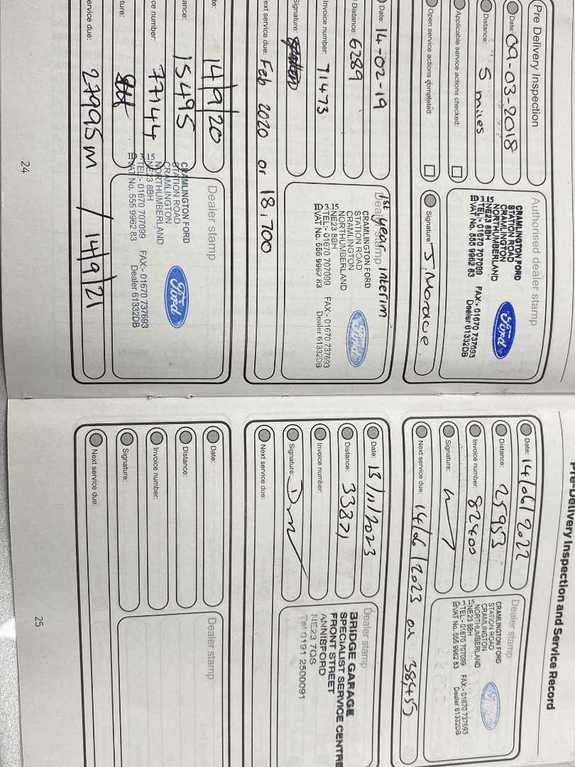 Pre-Delivery Inspection and Service Record
Pre Delivery Inspection
Date: 09-03-2018
Distance: 5 miles
Applicable service actions checked:
Open service actions completed:
Authorised dealer stamp
CRAMLINGTON FORD
STATION ROAD
CRAMLINGTON
NORTHUMBERLAND
NE23 8BH
TEL:- 01670 707099 FAX:- 01670 737693
VAT No. 556 9962 83 Dealer 61332DB
Ford
Signature
Date: 14-02-19
Distance: 6289
Invoice number: 71473
Signature:
Next service due: Feb 2020 or 18,700
Dealer stamp
1st year interim
CRAMLINGTON FORD
STATION ROAD
CRAMLINGTON
NORTHUMBERLAND
NE23 8BH
TEL:- 01670 707099 FAX:- 01670 737693
VAT No. 556 9962 83 Dealer 61332DB
Ford
14/9/20
15495
77144
27995m / 14/9/21
Dealer stamp
CRAMLINGTON FORD
STATION ROAD
CRAMLINGTON
NORTHUMBERLAND
NE23 8BH
TEL:- 01670 707099 FAX:- 01670 737693
VAT No. 556 9962 83 Dealer 61332DB
Ford
24
Date: 14/06/2022
Distance: 25953
Invoice number: 82400
Signature:
Next service due: 14/06/2023 or 38453
Dealer stamp
CRAMLINGTON FORD
STATION ROAD
CRAMLINGTON
NORTHUMBERLAND
NE23 8BH
TEL:- 01670 707099 FAX:- 01670 737693
VAT No. 556 9962 83 Dealer 61332DB
Ford
Date: 13/11/2023
Distance: 33821
Invoice number:
Signature:
Next service due:
Dealer stamp
BRIDGE GARAGE
SPECIALIST SERVICE CENTRE
FRONT STREET
ANNISFORD
NE23 7QS
Tel: 0191 2500091
Date:
Distance:
Invoice number:
Signature:
Next service due:
Dealer stamp
25